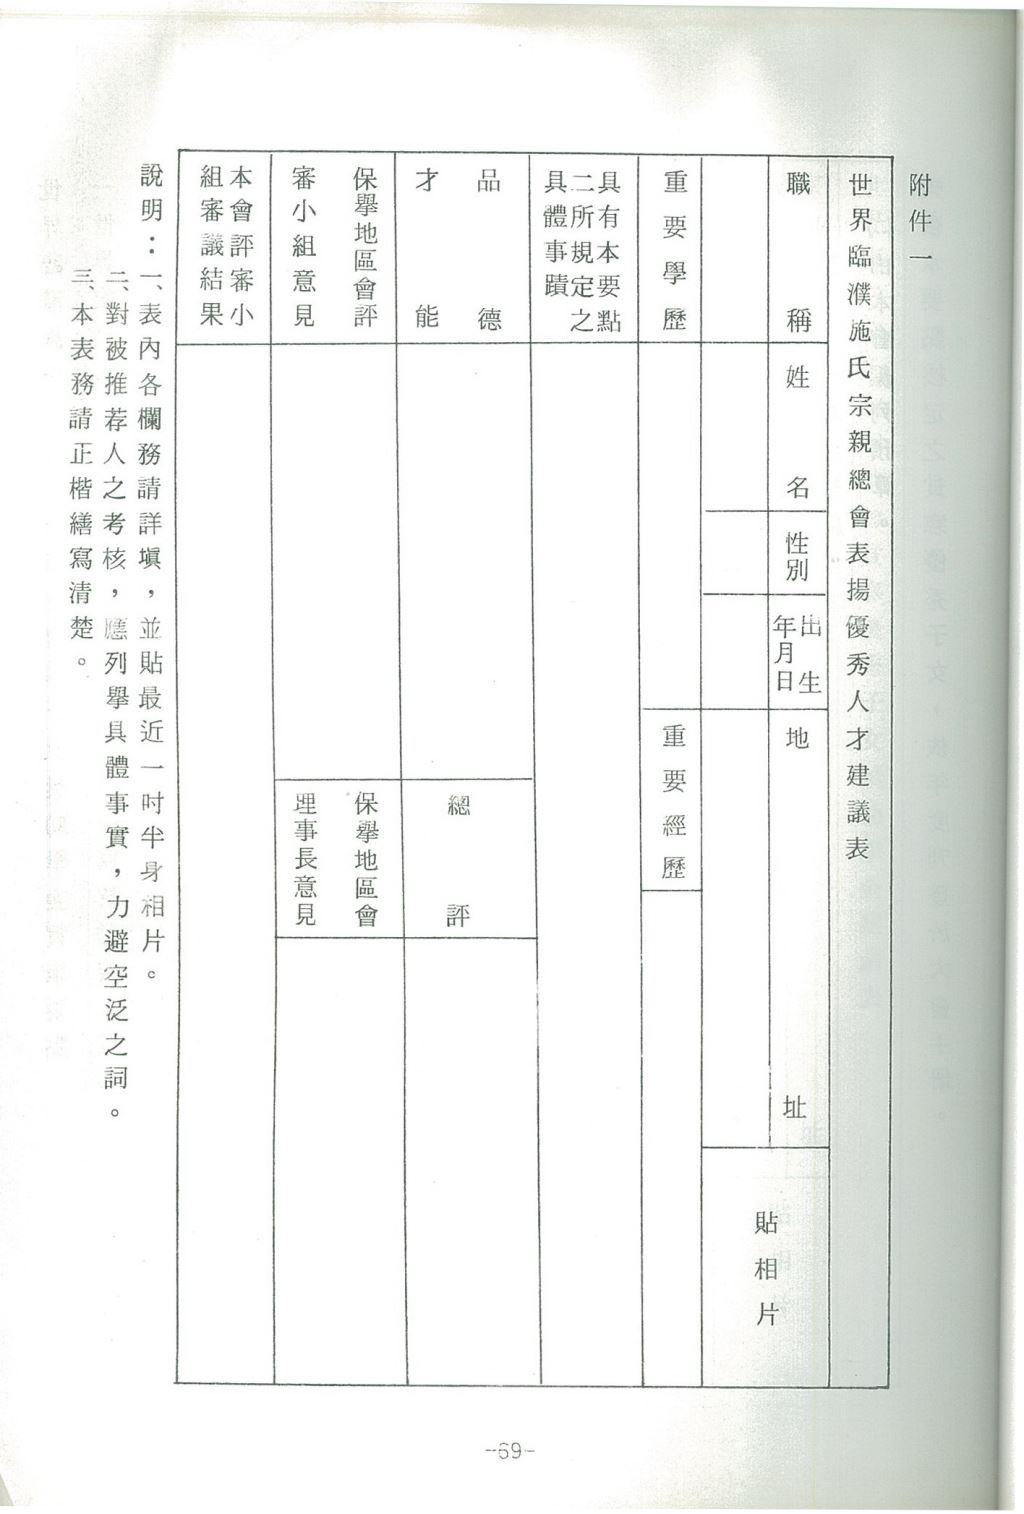 附件一
世界臨濮施氏宗親總會表揚優秀人才建議表
職稱
姓名
性別
出生
年月日
地址
貼相片
重要學歷
重要經歷
具有本要點
二所規定之
具體事蹟
品德
才能
總評
保舉地區會評
審小組意見
保舉地區會
理事長意見
本會評審小
組審議結果
說明：一、表內各欄務請詳塡，並貼最近一吋半身相片。
二、對被推荐人之考核，應列舉具體事實，力避空泛之詞。
三、本表務請正楷繕寫清楚。
-69-